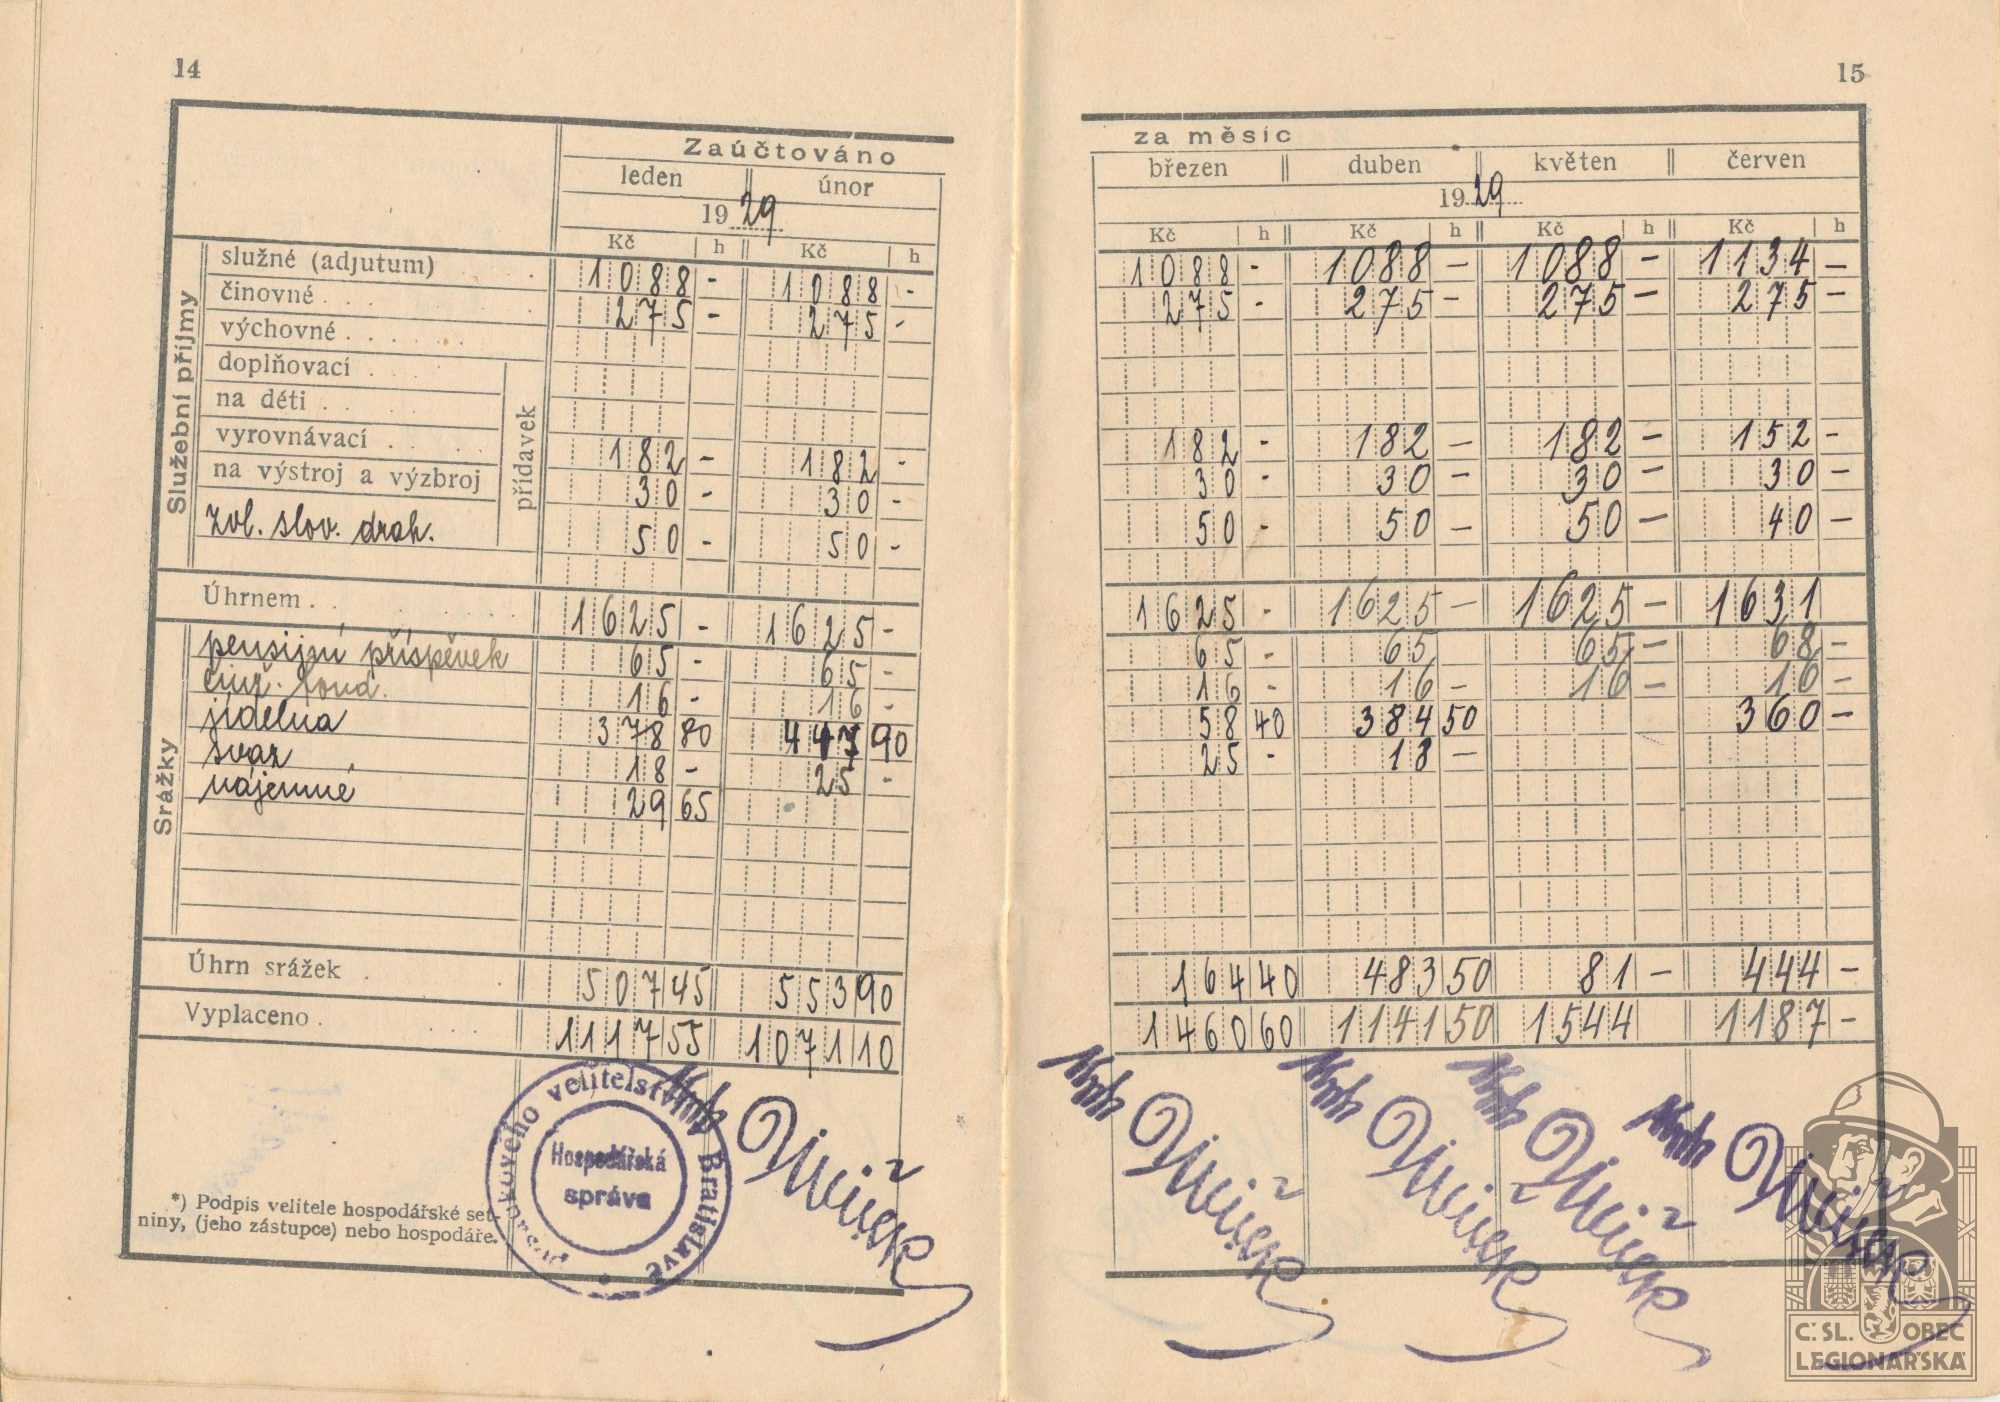 14
Zaúčtováno
leden || únor
19 29
Kč h Kč h
Služební příjmy
služné (adjutum) . 1088 - 1088 -
činovné . . . 275 - 275 -
výchovné . . . . . .
doplňovací . . . .
na děti . . . . .
vyrovnávací . . . 182 - 182 -
na výstroj a výzbroj 30 - 30 -
přídavek
zvl. slov. drah. 50 - 50 -
Úhrnem . . 1625 - 1625 -
Srážky
pensijní příspěvek 65 - 65 -
fond. 16 - 16 -
jídelna 378 80 447 90
svaz 18 - 25 -
nájemné 29 65
Úhrn srážek . 507 45 553 90
Vyplaceno . 1117 55 1071 10
*) Podpis velitele hospodářské set-
niny, (jeho zástupce) nebo hospodáře.
velitelství Bratislavě
Hospodářská
správa
15
za měsíc
březen || duben || květen || červen
19 29
Kč h Kč h Kč h Kč h
1088 - 1088 - 1088 - 1134 -
275 - 275 - 275 - 275 -
182 - 182 - 182 - 152 -
30 - 30 - 30 - 30 -
50 - 50 - 50 - 40 -
1625 - 1625 - 1625 - 1631
65 - 65 65 - 68 -
16 - 16 - 16 - 16 -
58 40 384 50 360 -
25 - 18 -
164 40 483 50 81 - 444 -
1460 60 1141 50 1544 1187 -
Č. SL. OBEC
LEGIONÁŘSKÁ